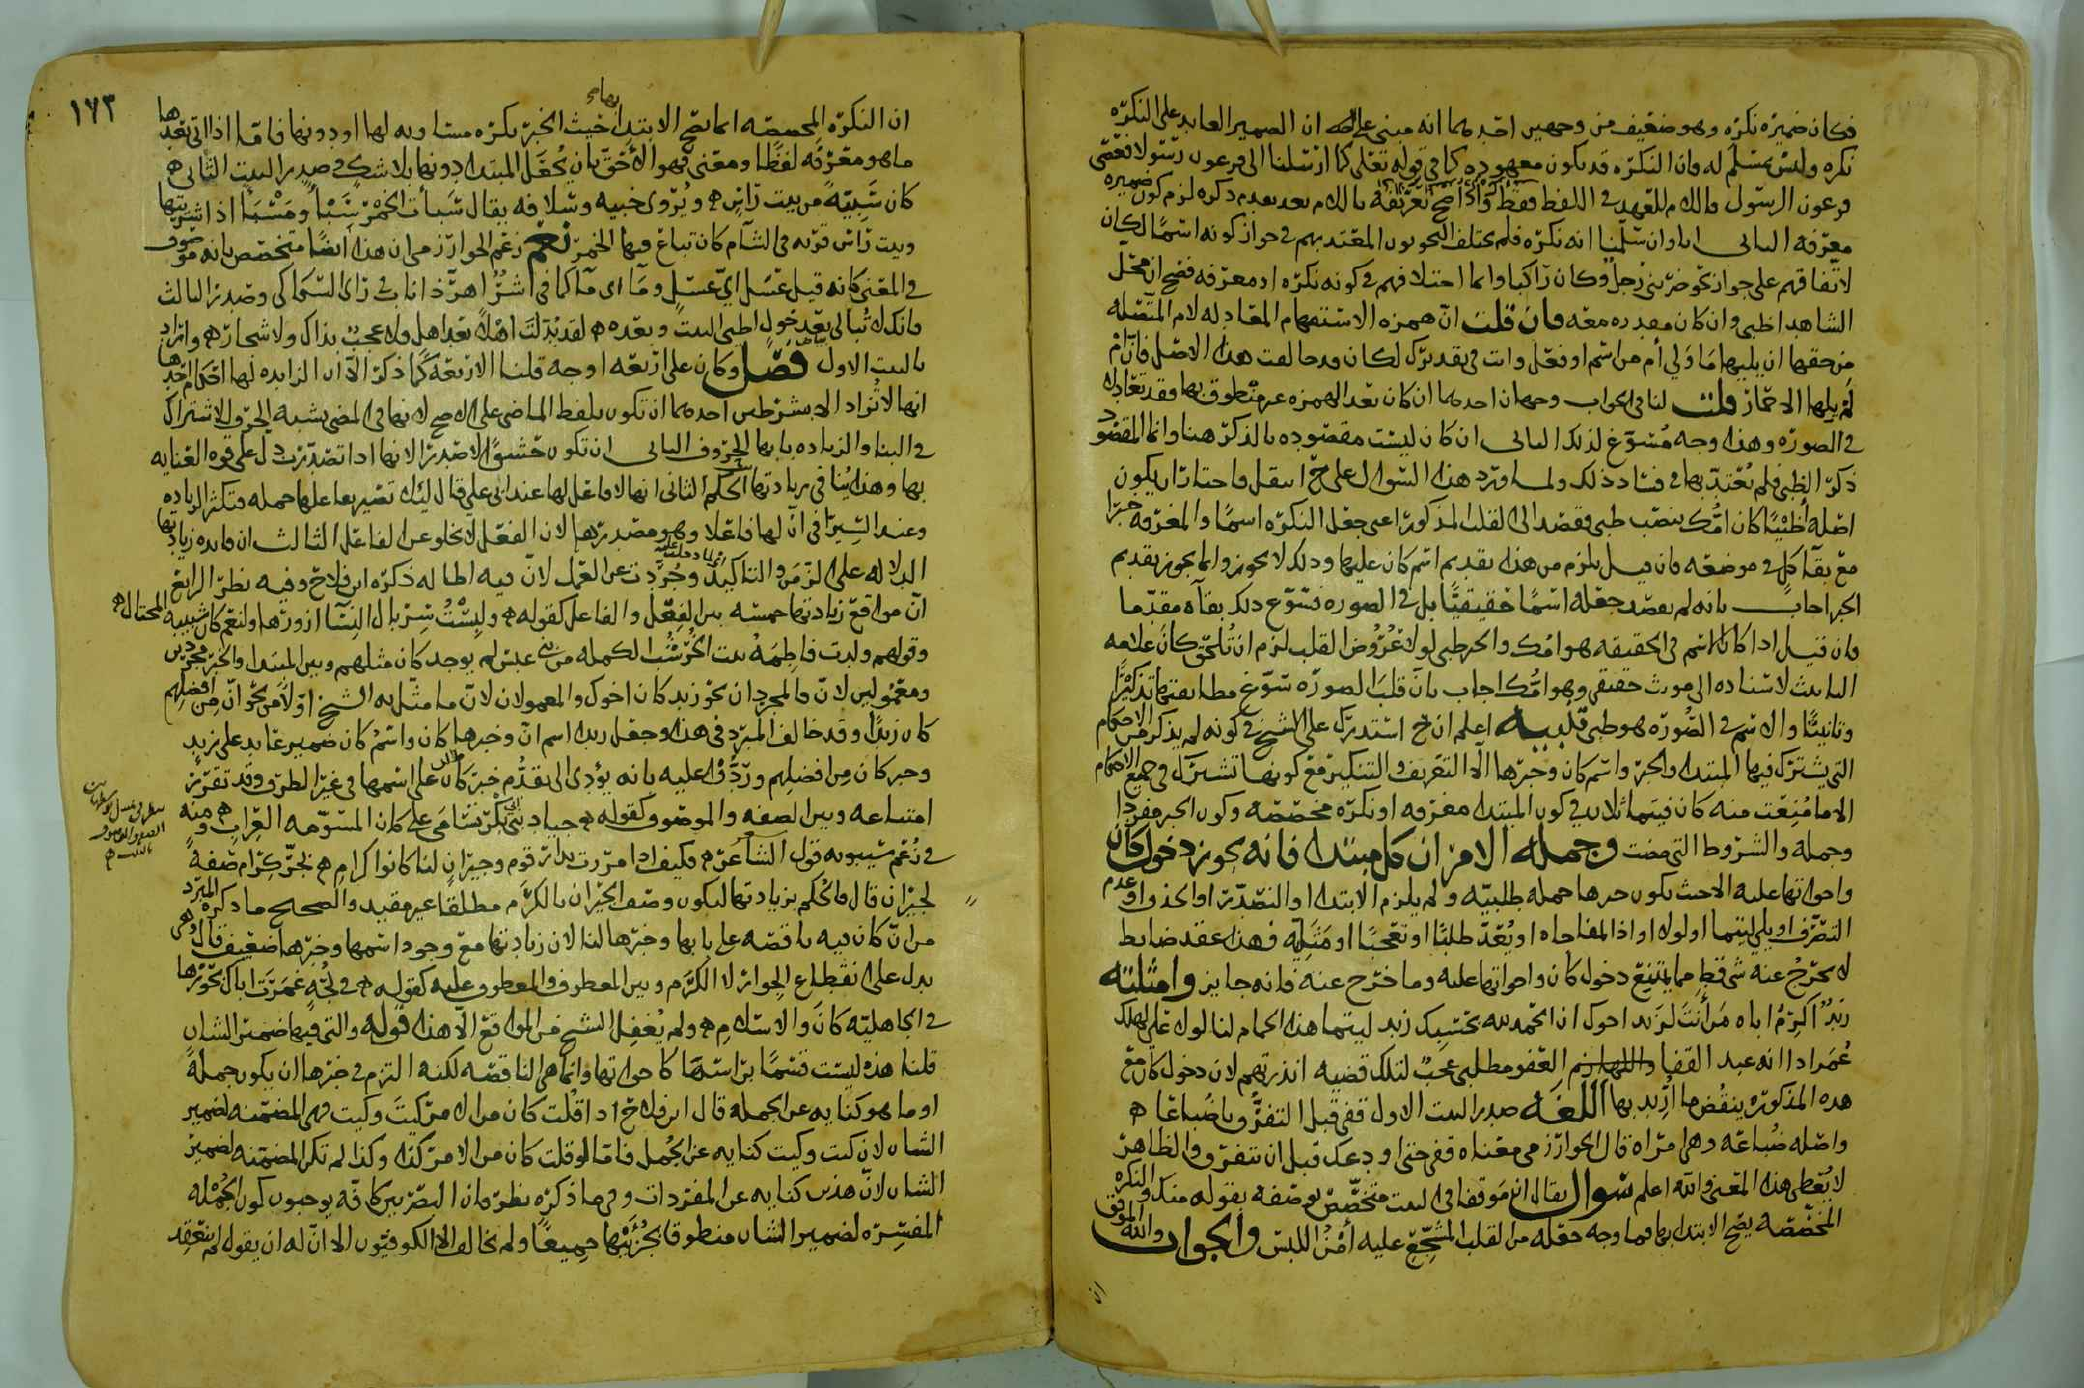 فكان ضميره نكرة وهو ضعيف من وجهين احدهما انه مبني على ان الضمير العايد على النكرة
نكرة وليس بمسلم له فان النكرة قد تكون معهودة كما في قوله تعلى كما ارسلنا الى فرعون رسولا فعصى
فرعون الرسول فاللام للعهد في اللفظ فقط واذا صح تعريفه باللام بعد تقدم ذكره لزم كون ضميره
معرفة الثاني انا وان سلمنا انه نكرة فلم يختلف النحويون المعتد بهم في جواز كونه اسما لكان
لاتفاقهم على جواز نحو ضربني رجل وكان راكبا وانما اختلافهم في كونه نكرة او معرفة فصح ان محل
الشاهد اظبي وان كان مقدره معه فان قلت ان همزة الاستفهام المعادلة لام المتصلة
من حقها ان يليها ما ولي أم من اسم او فعل وانت في تقديرك لكان قد خالفت هذا الاصل فان أم
لم يلها الا حمار قلت لنا في الجواب وجهان احدهما ان كان بعد الهمزة غير منطوق بها وقد تعادل
في الصورة وهذا وجه مسوغ لذلك الثاني ان كان ليست مقصودة بالذكر هنا وانما المقصود
ذكر الظبي فلم يعتد بها في فساد ذلك ولما ورد هذا السوال على اجاز ان يكون
اصله أظبيا كان امك بنصب ظبي فقصد الى القلب المذكور اعني جعل النكرة اسما والمعرفة خبرا
مع بقا كل في موضعه فان قيل يلزم من هذا تقديم اسم كان عليها وذلك لا يجوز وانما يجوز تقديم
الخبر اجاب بانه لم يقصد جعله اسما حقيقيا بل في الصورة فسوغ ذلك بقاه مقدما
فان قيل اذا كان الاسم في الحقيقة هو امك والخبر ظبي لولا عروض القلب لزم ان تلحق كان علامة
التانيث لاسناده الى مونث حقيقي وهو امك اجاب بان قلب الصورة سوغ مطابقتها تذكيرا
وتانيثا والاسم في الصورة هو ظبي تنبيه اعلم ان استدرك على الشيخ في كونه لم يذكر من الاحكام
التي يشترك فيها المبتدا والخبر واسم كان وخبرها الا التعريف والتنكير مع كونها تشترك في جميع الاحكام
الا ما منعت منه كان فيتماثلان في كون المبتدا معرفة او نكرة مخصصة وكون الخبر مفردا
وجملة والشروط التي مضت وجملة الامر ان كل مبتدا فانه يجوز دخول كان
واخواتها عليه الا حيث يكون خبرها جملة طلبية ولم يلزم الابتدا او التصدر او الحذف او عدم
التصرف او يلي ليتما او لولا او اذا المفاجاه او يعد طلبا او تعجبا او مثله فهذا عقد ضابط
لا يخرج عنه شي قط مما يمتنع دخول كان واخواتها عليه وما خرج عنه فانه جايز وامثلته
زيد اكرم اباه من أنت لزيد اخوك ان الحمد لله حسبك زيد ليتما هذا الحمام لنا لولا علي لهلك
عمر اذا انه عبد القفا واللهازم العفو مطلبي عجب لتلك قضية انذرتهم لان دخول كان مع
هذه المذكورة ينقض ما أريد بها اللغة صدر البيت الاول قفي قبل التفرق يا ضباعا
واصله ضباعة وهي امراة قال الخوارزمي معناه قفي حتى اودعك قبل ان نتفرق والظاهر
لا يعطي هذا المعنى والله اعلم سوال يقال ان موقفا في البيت متخصص بوصفه بقوله منك والنكرة
المخصصة يصح الابتدا بها فما وجه جعله من القلب المشجع عليه أمن اللبس والجواب والله الموفق
ان
١٧٣
ان النكرة المخصصة انما يصح الابتدا بها حيث الخبر نكرة مساوية لها او دونها فاما اذا اتى بعدها
ما هو معرفة لفظا ومعنى فهو الأحق بان يجعل المبتدا دونها بلا شك في صدر البيت الثاني
كان سبيئة من بيت راس ويروى خبيه وسلافه يقال سبأت الخمر سبأ ومسبأ اذا اشتريتها
وبيت راس قرية في الشام كان تباع فيها الخمر نعم زعم الخوارزمي ان هذا ايضا متخصص بانه موصوف
في المعنى كانه قيل عسل اي عسل وما اي ما كما في شر اهر ذا ناب في راي السكاكي وصدر الثالث
فانك لا تبالي بعد حول اظبي البيت وبعده لقد بدلت اهلا بعد اهل ولا عجب بذاك ولا شجار واراد
بالبيت الاول فصل وكان على اربعة اوجه قلنا الاربعة كما ذكر الا ان الزايدة لها احكام احدها
انها لا تزاد الا بشرطين احدهما ان تكون بلفظ الماضي على الاصح لانها في المضي بشبه الحرف لاشتراك
في البنا والزيادة بابها الحروف الثاني ان تكون حشوا لا صدرا لانها اذا تصدرت دل على قوة العناية
بها وهذا ينافي زيادتها الحكم الثاني انها لا فاعل لها عند ابي علي قال ليلا تصير معا علها جملة وتكثر الزيادة
وعند السيرافي ان لها فاعلا وهو مصدرها لان الفعل لا يخلو عن الفاعل الثالث ان فايدة زيادتها
الدلالة على الزمن والتاكيد وجردت عن العمل لان فيه ابطاله ذكره ابن فلاح وفيه نظر الرابع
ان مواقع زيادتها خمسة بين الفعل والفاعل كقوله ولبست سربال الشباب ازورها ولنعم كان شبيبة المحتال
وقولهم ولدت فاطمة بنت الخرشب الكملة من بني عبس لم يوجد كان مثلهم وبين المبتدا والخبر مجردين
ومعمولين لان فالمجردان نحو زيد كان اخوك والمعمولان لان ما مثل به الشيخ اولا من نحو ان من افضلهم
كان زيدا وقد خالف المبرد في هذا وجعل زيدا اسم ان وخبرها كان واسم كان ضمير عايد على زيد
وخبر كان من افضلهم ورد عليه بانه يؤدي الى تقدم خبر كان على اسمها في غير الظرف وقد تقرر
امتناعه وبين الصفة والموصوف كقوله جياد بني ابي بكر تسامى على كان المسومة العراب ومنه
في زعم سيبويه قول الشاعر فكيف اذا مررت بدار قوم وجيران لنا كانوا كرام بجر كرام صفة
لجيران قال فالحكم بزيادتها ليكون وصف الجيران بالكرم مطلقا غير مقيد والصحيح ما ذكره المبرد
من ان كان فيه ناقصة على بابها وخبرها لنا لان زيادتها مع وجود اسمها وخبرها ضعيف قال وهي
تدل على انقطاع الجوار لا الكرم وبين المعطوف والمعطوف عليه كقوله في لجة غمرت اباك بحورها
في الجاهلية كان والاسلام ولم يغفل الشيخ من المواقع الا هذا قوله والتي فيها ضمير الشان
قلنا هذه ليست قسما براسها كاخواتها وانما هي الناقصة لكنه التزم في خبرها ان يكون جملة
او ما هو كناية عن الجملة قال ابن فلاح اذا قلت كان من الامر كيت وكيت فهي المضمنة لضمير
الشان لان كيت وكيت كناية عن الجمل فاما لو قلت كان من الامر كذا وكذا لم تكن المضمنة لضمير
الشان لان هذين كناية عن المفردات وفيما ذكره نظر فان البصريين كافة يوجبون كون الجملة
المفسرة لضمير الشان منطوقا بجزئيها جميعا ولم يخالف الا الكوفيون الا ان له ان يقول لم ينعقد